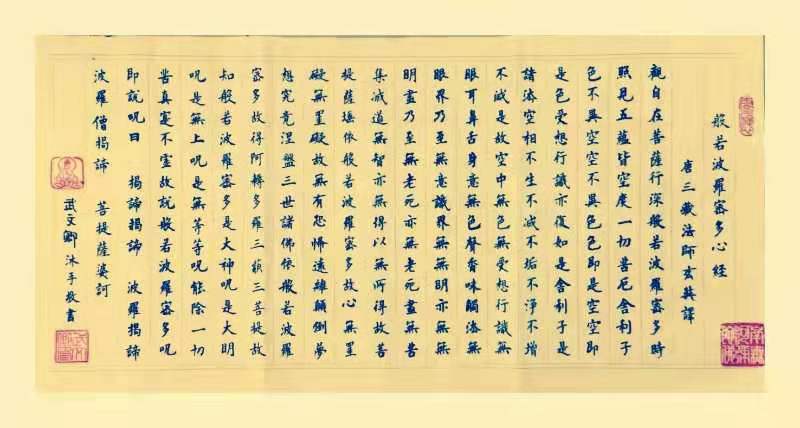 般若波羅蜜多心經
唐三藏法師玄奘譯
觀自在菩薩行深般若波羅蜜多時
照見五蘊皆空度一切苦厄舍利子
色不異空空不異色色即是空空即
是色受想行識亦復如是舍利子是
諸法空相不生不滅不垢不淨不增
不減是故空中無色無受想行識無
眼耳鼻舌身意無色聲香味觸法無
眼界乃至無意識界無無明亦無無
明盡乃至無老死亦無老死盡無苦
集滅道無智亦無得以無所得故菩
提薩埵依般若波羅蜜多故心無罣
礙無罣礙故無有恐怖遠離顛倒夢
想究竟涅盤三世諸佛依般若波羅
蜜多故得阿耨多羅三藐三菩提故
知般若波羅蜜多是大神呪是大明
呪是無上呪是無等等呪能除一切
苦真實不虛故說般若波羅蜜多呪
即說呪曰 揭諦揭諦 波羅揭諦
波羅僧揭諦 菩提薩婆訶
武文卿沐手敬書